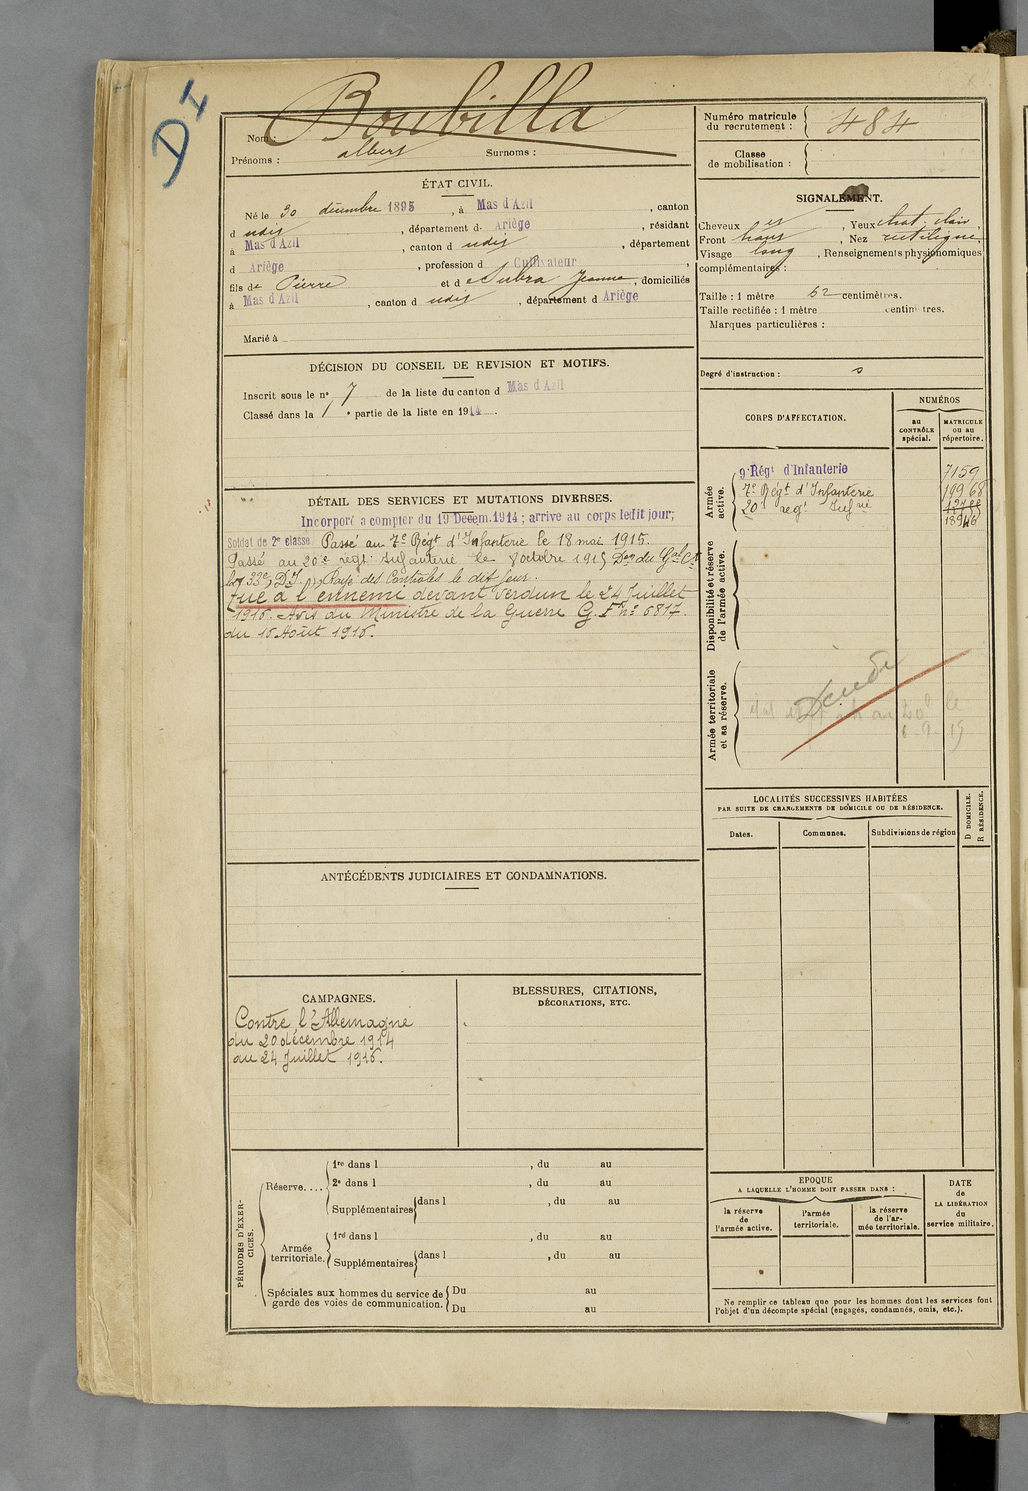 D I
Boubilla
Nom :
Prénoms : albert Surnoms :
Numéro matricule
du recrutement : 484
Classe
de mobilisation :
ÉTAT CIVIL.
Né le 30 décembre 1895, à Mas d'Azil, canton
d udit, département d- Ariège, résidant
à Mas d'Azil, canton d udit, département
d Ariège, profession d Cultivateur
fils de Pierre et de Subra Jeanne, domiciliés
à Mas d'Azil, canton d udit, département d Ariège
Marié à
SIGNALEMENT.
Cheveux, Yeux chat. clair,
Front, Nez rectiligne
Visage long, Renseignements physionomiques
complémentaires :
Taille : 1 mètre 62 centimètres.
Taille rectifiée : 1 mètre centimètres.
Marques particulières :
Degré d'instruction : 0
DÉCISION DU CONSEIL DE REVISION ET MOTIFS.
Inscrit sous le n° 7 de la liste du canton d Mas d'Azil
Classé dans la 1e partie de la liste en 1914.
CORPS D'AFFECTATION.
NUMÉROS
au
CONTRÔLE
spécial.
MATRICULE
ou au
répertoire.
Armée
active.
9e Régt d'Infanterie 7159
7e Régt d'Infanterie 19968
20e regt Infrie
18946
Disponibilité et réserve
de l'armée active.
Armée territoriale
et sa réserve.
DÉTAIL DES SERVICES ET MUTATIONS DIVERSES.
Incorporé à compter du 19 Décem. 1914 ; arrivé au corps ledit jour;
Soldat de 2e classe Passé au 7e Régt d'Infanterie le 18 mai 1915.
Passé au 20e regt Infanterie le 8 octobre 1915 Don du Gal Ct
la 33e D.I. Rayé des Contrôles le dit jour.
Tué à l'ennemi devant Verdun le 24 Juillet
1916. Avis du Ministre de la Guerre G.F. n° 6817.
du 16 Août 1916.
LOCALITÉS SUCCESSIVES HABITÉES
PAR SUITE DE CHANGEMENTS DE DOMICILE OU DE RÉSIDENCE.
Dates.
Communes.
Subdivisions de région
D DOMICILE.
R RÉSIDENCE.
ANTÉCÉDENTS JUDICIAIRES ET CONDAMNATIONS.
CAMPAGNES.
Contre l'Allemagne
du 20 décembre 1914
au 24 Juillet 1916.
BLESSURES, CITATIONS,
DÉCORATIONS, ETC.
PÉRIODES D'EXER-
CICES.
Réserve....
1re dans l, du au
2e dans l, du au
Supplémentaires dans l, du au
Armée
territoriale.
1re dans l, du au
Supplémentaires dans l, du au
Spéciales aux hommes du service de
garde des voies de communication.
Du au
Du au
EPOQUE
A LAQUELLE L'HOMME DOIT PASSER DANS :
la réserve
de
l'armée active.
l'armée
territoriale.
la réserve
de l'ar-
mée territoriale.
DATE
de
LA LIBÉRATION
du
service militaire.
Ne remplir ce tableau que pour les hommes dont les services font
l'objet d'un décompte spécial (engagés, condamnés, omis, etc.).